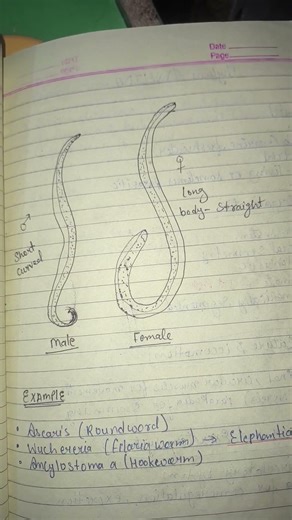 Date
Page
♂
Short
Curved
♀
Long
body- Straight
Male
Female
EXAMPLE
• Ascaris (Roundword)
• Wuchereria (Filaria worm) → Elephantia
• Ancylostoma a (Hookworm)